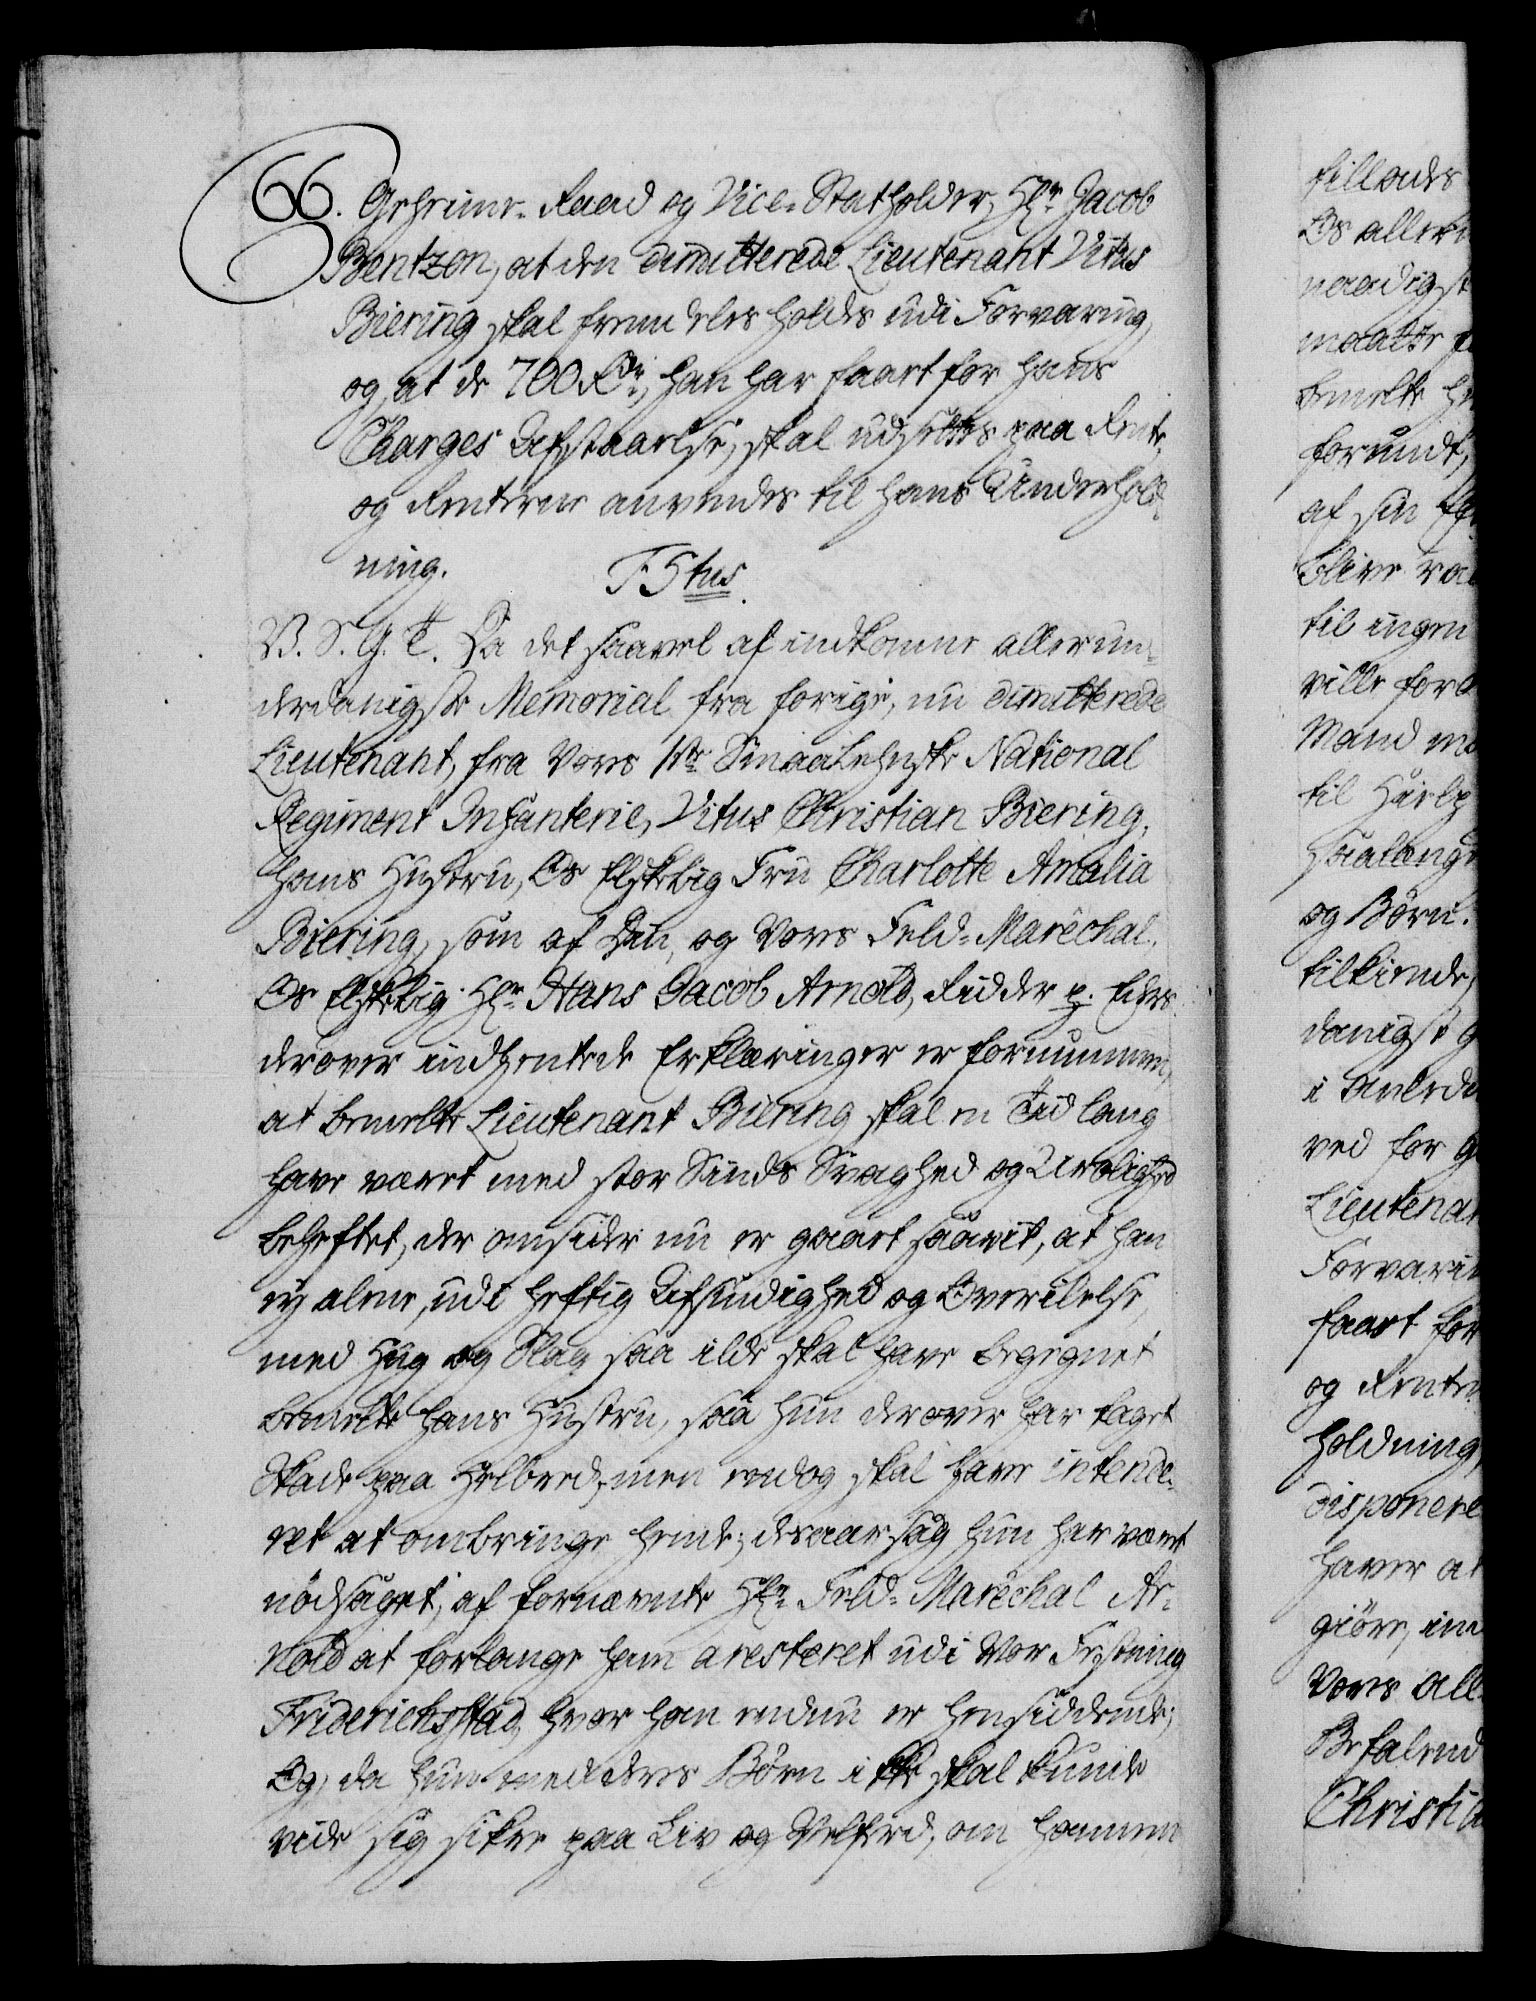 66. Geheime-Raad og Vice-Statholder, Hr Jacob
Bentzon, at den dimitterede Lieutenant Vitus
Biering skal fremdeles holdes udi Forvaring,
og, at de 700 Rdr, han har faaet for hans
Charges Afstaaelse, skal udsettes paa Rente,
og Renterne anvendes til hans Underhold-
ning.
F5tus.
V. S. G. T. Da det saavel af indkomne allerun-
derdanigste Memorial fra forige, nu dimitterede
Lieutenant, fra Vores 1ste Smaalehnske National
Regiment Infanterie, Vitus Christian Biering,
hans Hustru, Os Elskelig Fru Charlotte Amalia
Biering, som af Din, og Vores Feld-Maréchal,
Os Elskelig Hr Hans Jacob Arnold, Ridder p. Eders
derover indhentede Erklæringer er fornummen,
at bemelte Lieutenant Biering skal en Tid lang
have været med stor Sinds Svaghed og Urolighed
beheftet, der omsider nu er gaaet saavit, at han
ey alene, udi heftig Afsindighed og Overilelse,
med Hug og Slag saa ilde skal have begegnet
bemelte hans Hustru, saa hun derover har taget
Skade paa Helbred, men endog skal have intende-
ret at ombringe hende; desaarsag hun har været
nødsaget, af fornævnte Hr Feld-Maréchal Ar-
nold at forlange ham aresteret udi Vor Festning
Friderichsstad, hvor han endnu er hensiddende;
Og, da hun med deres Børn ikke skal kunde
vide sig sikre paa Liv og Velferd, om hannem
tillades
Os aller
naadigst
maatte
bemelte
forundt,
af sin
blive
til ingen
ville
Mand
til Hielp
saalænge
og Børn.
tilkiende,
danigst
i
ved for
Lieutenan
Forvarin
faaet for
og Renter
holdning,
disponere
haver at
giøre, in
Vores all
Befalend
Christia